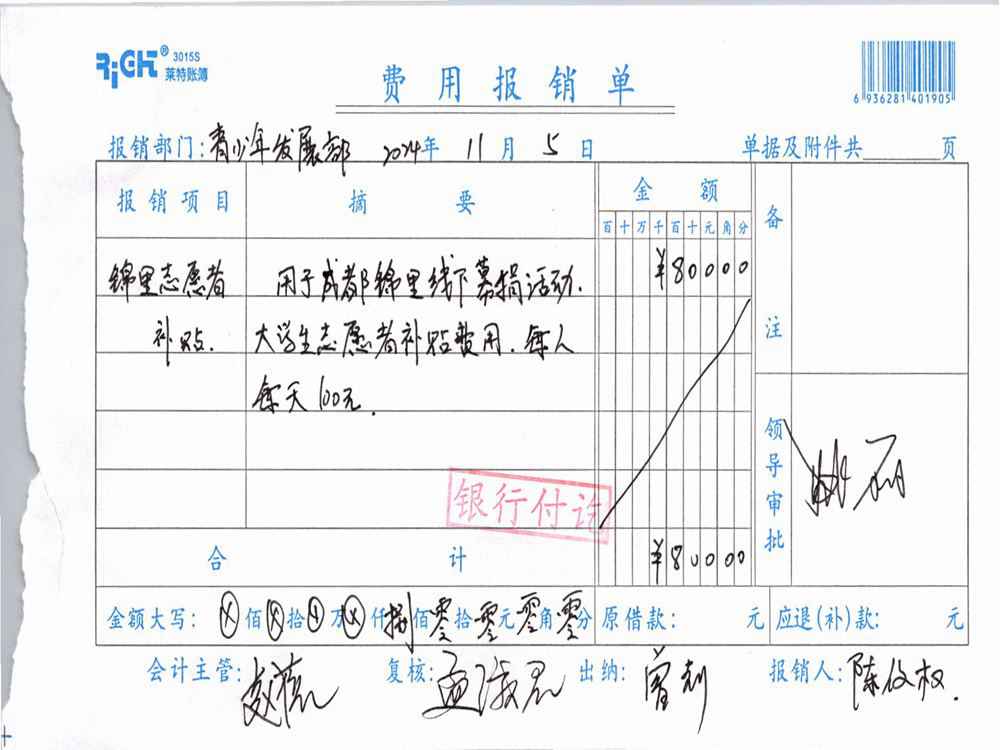 RiGHT® 3015S
莱特账簿
费用报销单
6 936281 401905
报销部门:青少年发展部 2024年 11月 5日 单据及附件共 页
报销项目 摘要 金额 备注
百十万千百十元角分
锦里志愿者 用于成都锦里线下募捐活动. ¥80000
补贴. 大学生志愿者补贴费用.每人
每天100元.
领导审批
银行付讫
合计 ¥80000
金额大写: ⊗佰⊗拾⊗万⊗仟捌佰零拾零元零角零分 原借款: 元 应退(补)款: 元
会计主管: 复核: 出纳: 报销人: